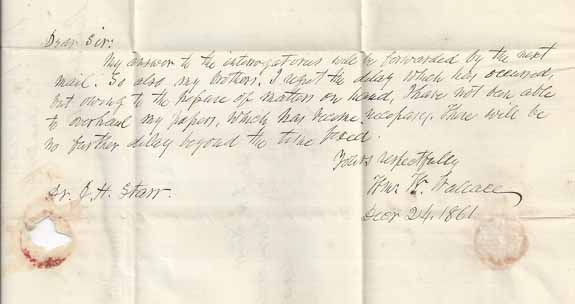 Dear Sir:
My answer to the interrogatories will be forwarded by the next
mail. So also my brothers. I regret the delay which has occurred,
but owing to the
of matters on hand, I have not been able
to overhaul my papers, which has become necessary. There will be
no further delay beyond the time fixed.
Yours respectfully
Wm. W. Wallace
Dr. J. H. Starr.
Decr 24. 1861